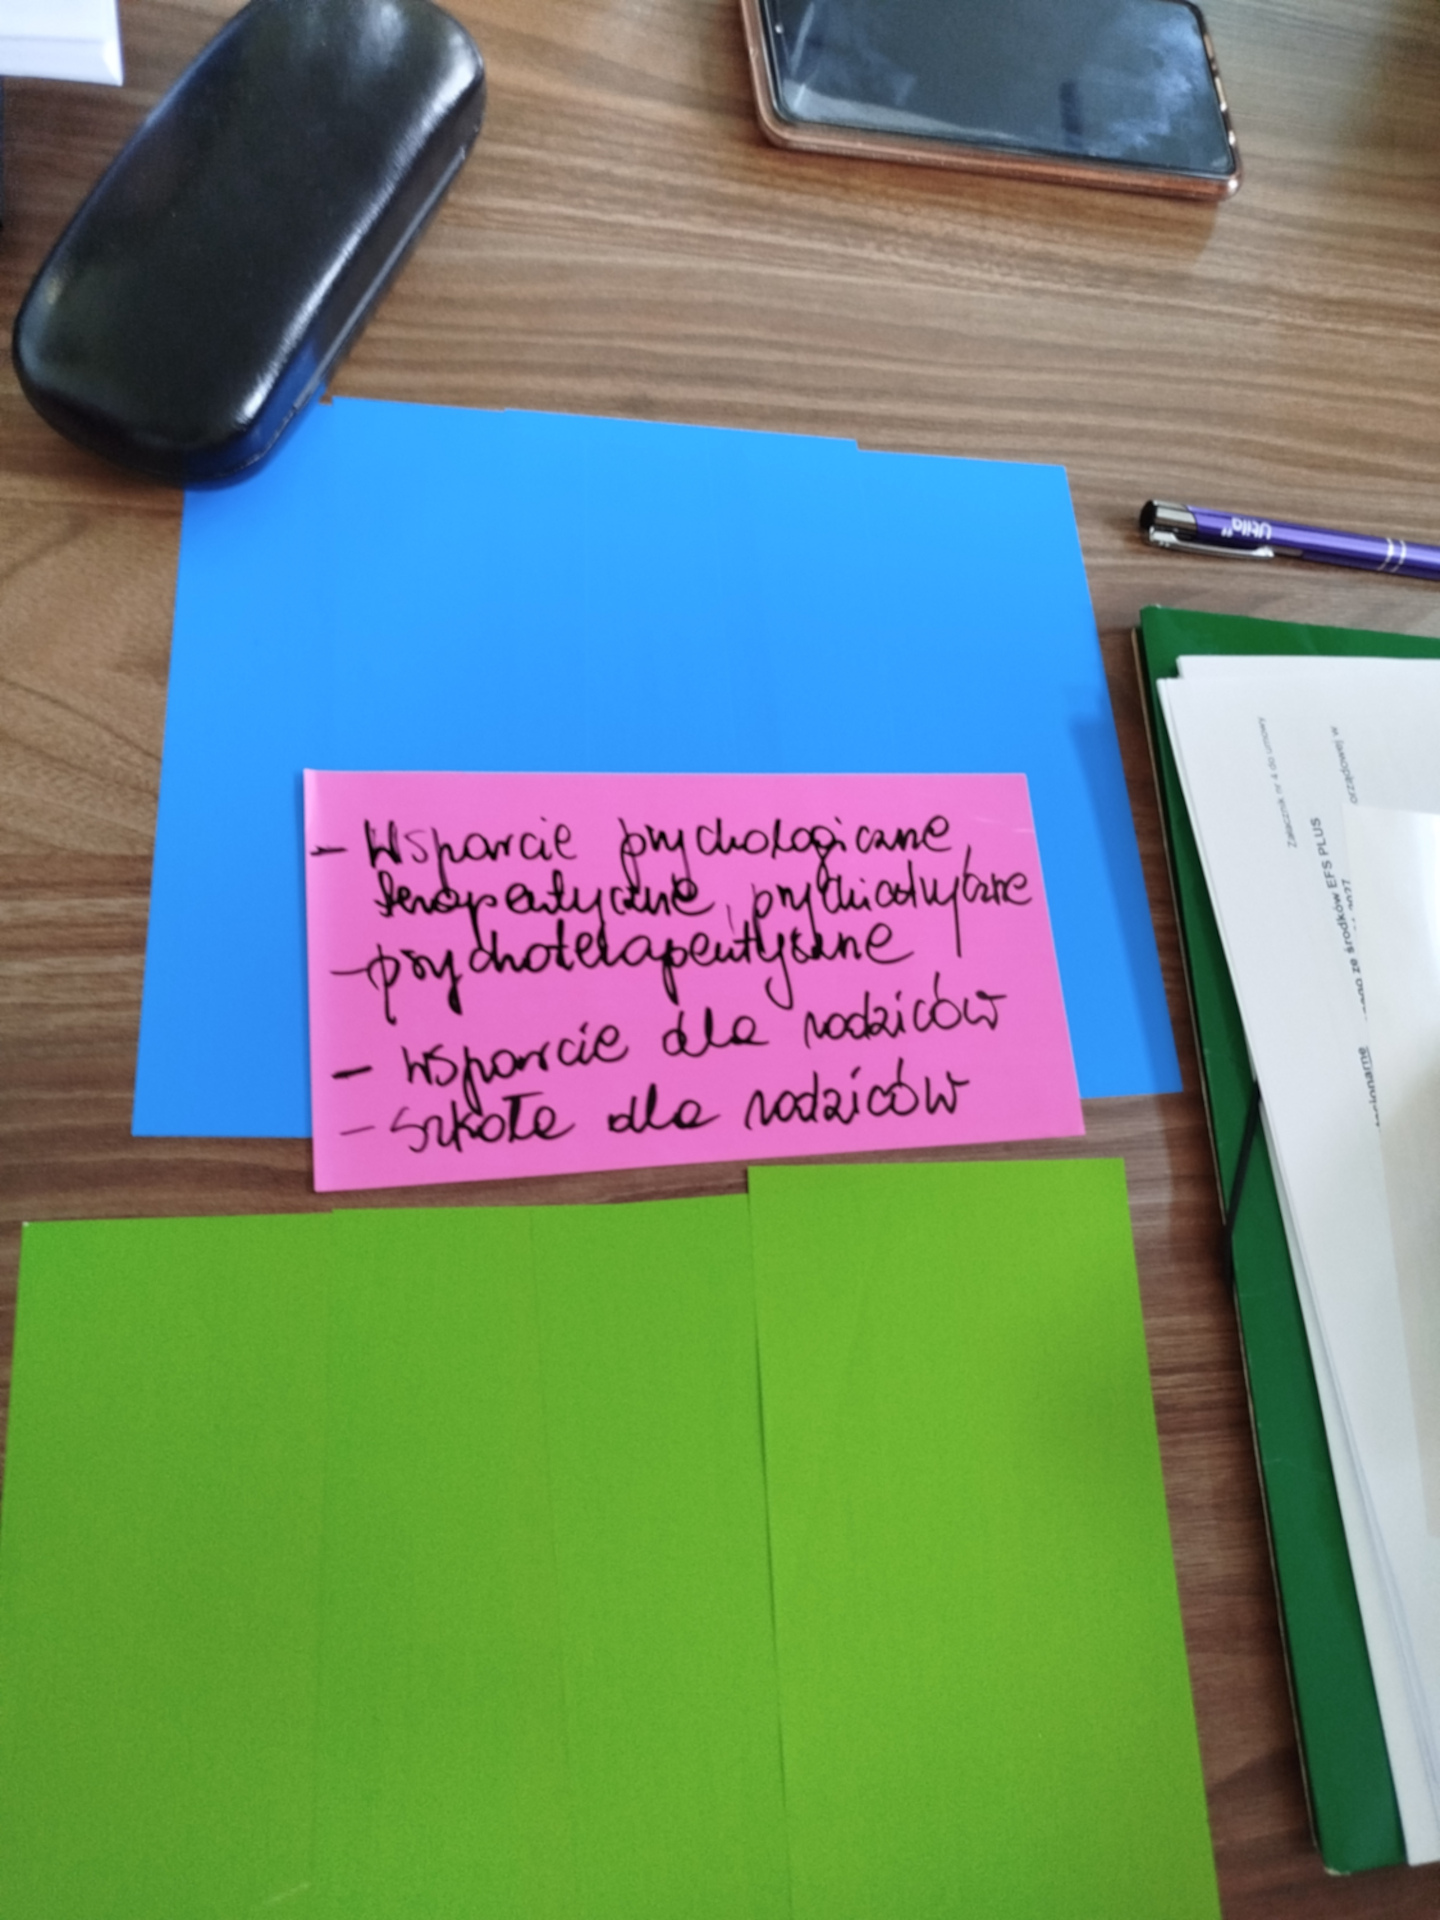 - Wsparcie psychologiczne,
terapeutyczne, psychiatryczne
- psychoterapeutyczne
- wsparcie dla rodziców
- szkoła dla rodziców
"Utila"
Załącznik nr 4 do umowy
orządowej w
ze środków EFS PLUS
2027